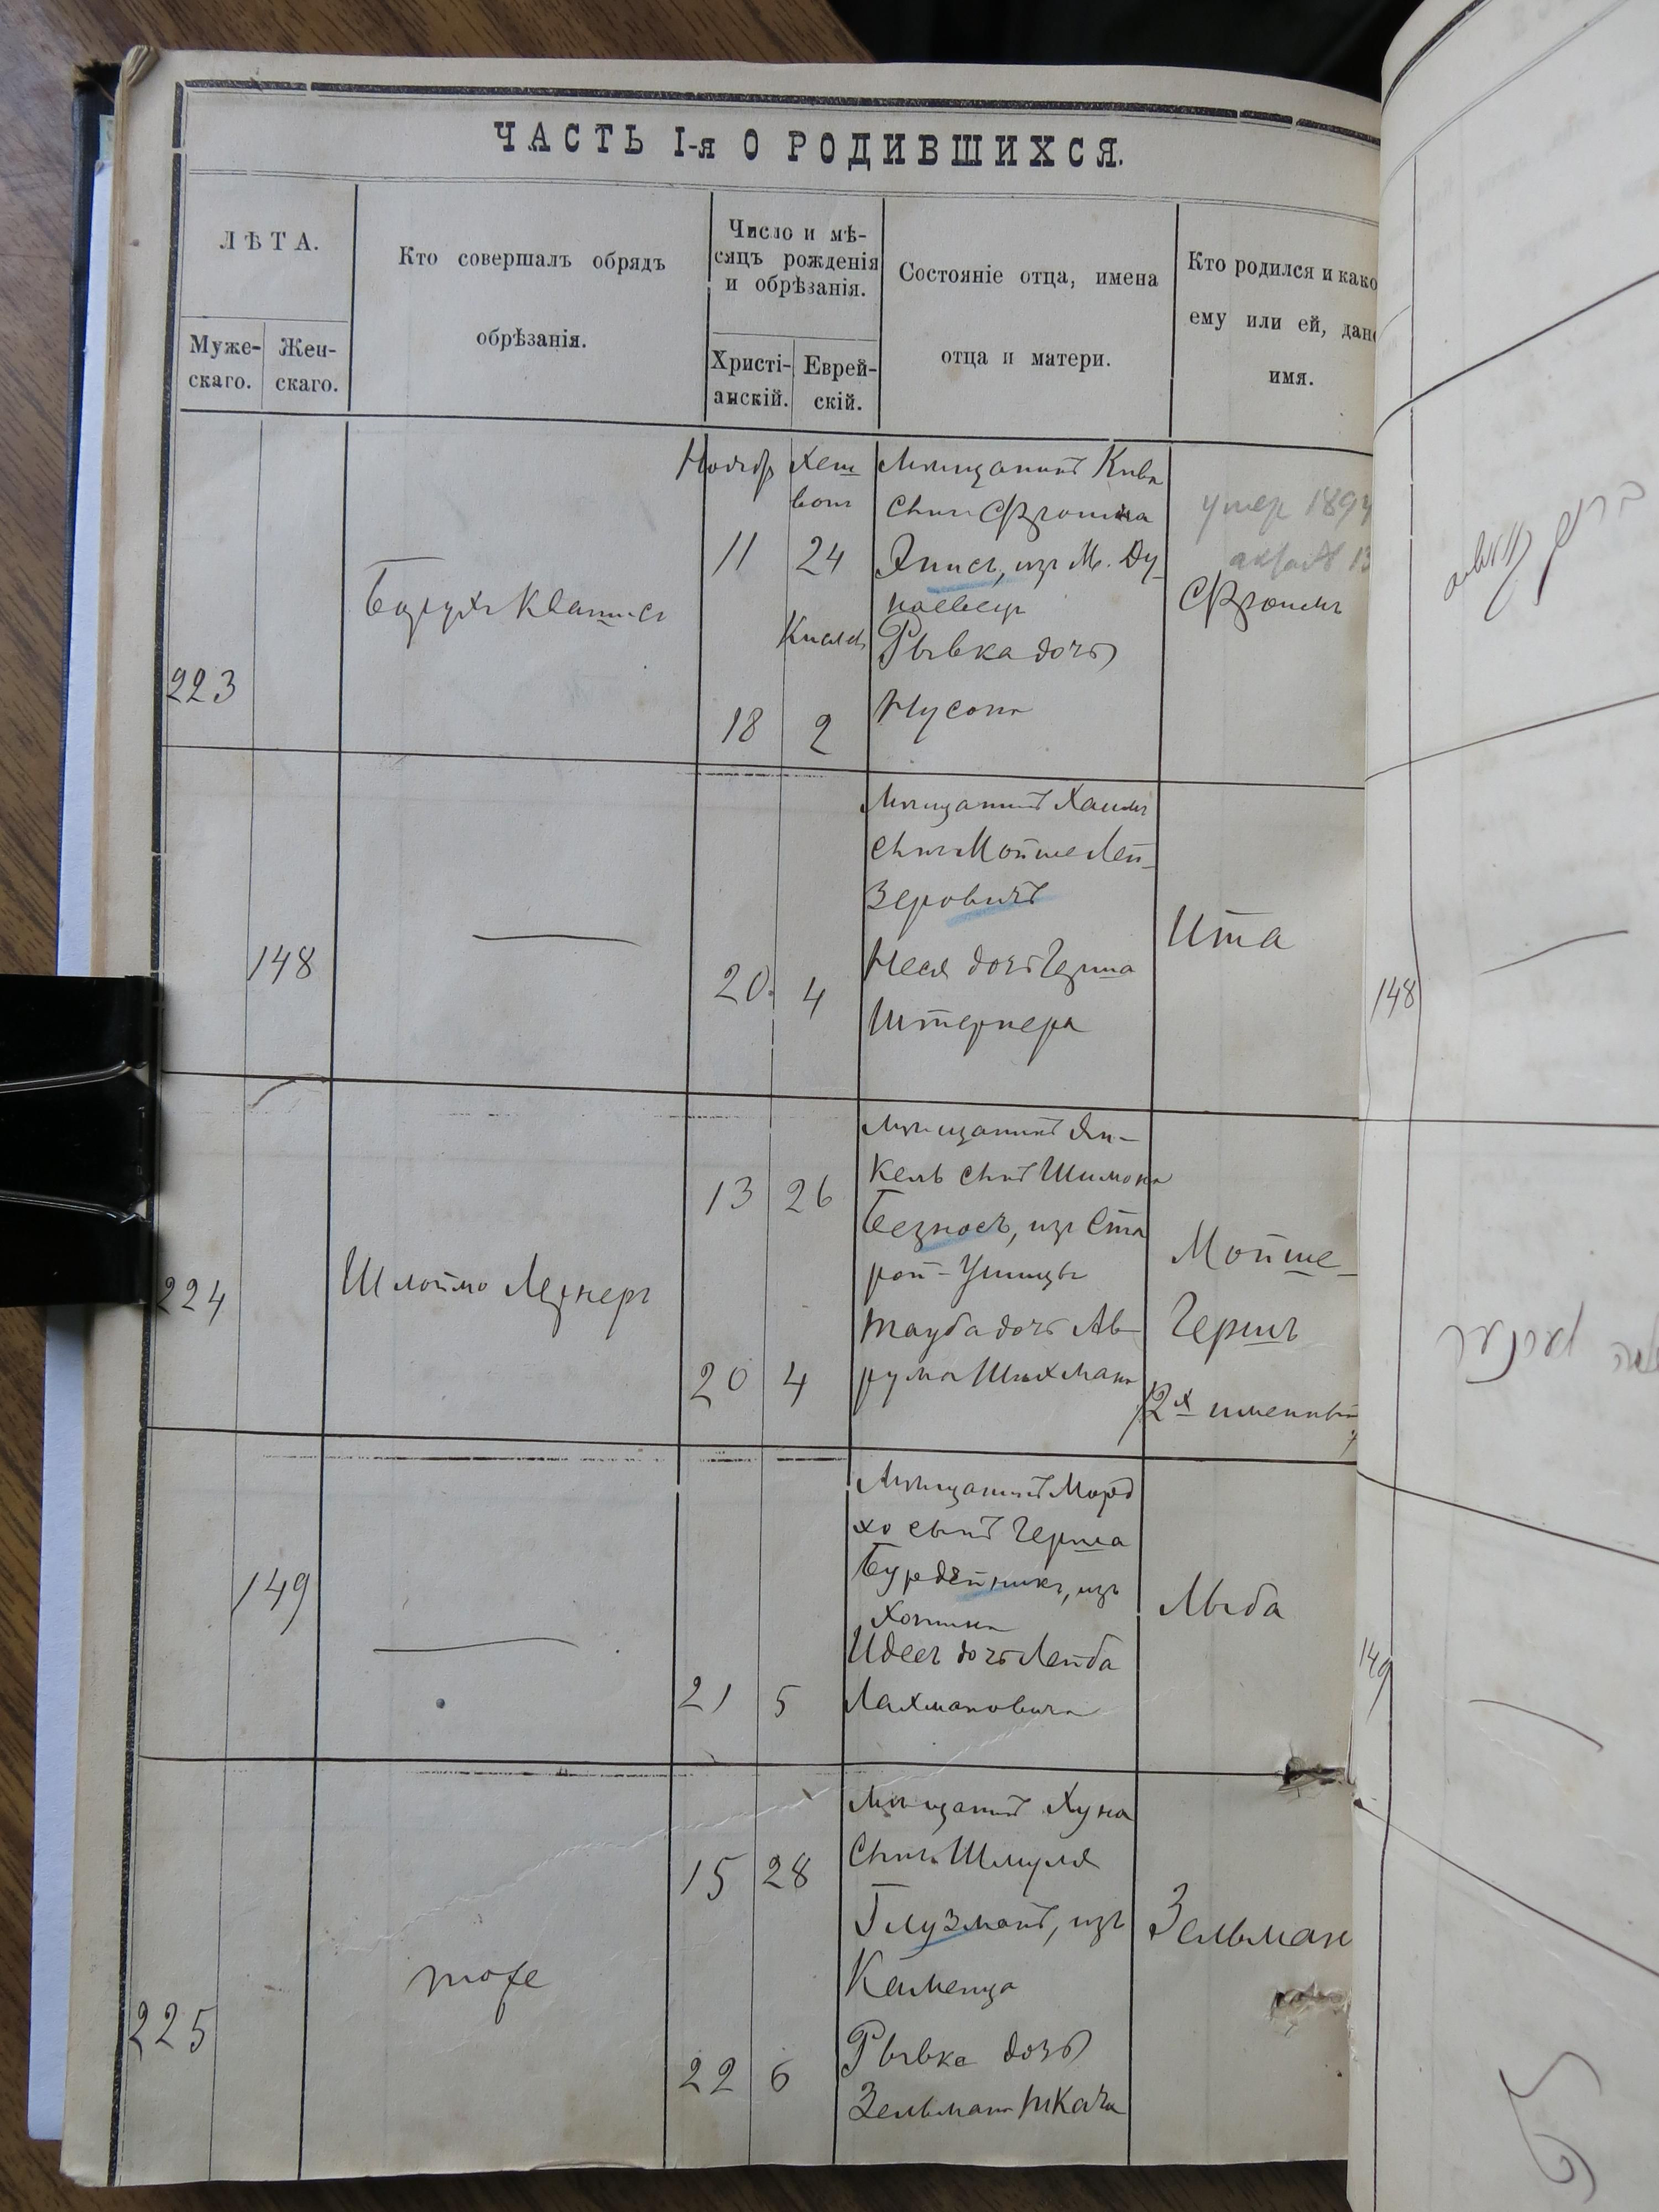 ЧАСТЬ I-я О РОДИВШИХСЯ.
ЛѢТА.
Муже-
скаго.
Жен-
скаго.
Кто совершалъ обрядъ
обрѣзанія.
Число и мѣ-
сяцъ рожденія
и обрѣзанія.
Христі-
анскій.
Еврей-
скій.
Состояніе отца, имена
отца и матери.
Кто родился и како
ему или ей, дано
имя.
223
Борухъ
Ноябр
11
18
Хеш
вон
24
Кислев
2
Мѣщанинъ Кива
сынъ Фроима
изъ М. Ду-
наевецъ
Рывка дочь
Нусона
умер 1894
Фроимъ
148
20
4
Мѣщанинъ Хаимъ
сынъ Мойше Лей-
зеровичъ
Неся дочь Герша
Штернера
Ита
224
Шлоймо Лернеръ
13
20
26
4
Мѣщанинъ Ян-
кель сынъ Шимона
Безносъ, изъ Ста
рой-Ушицы
Тауба дочь Ав-
рума Шихмана
Мойше-
Гершъ
2х именный
149
21
5
Мѣщанинъ Морд
хо сынъ Герша
Бурдейникъ, изъ
Хотина
Идесъ дочь Лейба
Лахмановича
Лыба
225
тоже
15
22
28
6
Мѣщанинъ Хуна
сынъ Шмуля
Глузманъ, изъ
Каменца
Рывка дочь
Зельмана Ткача
Зельман
148
149